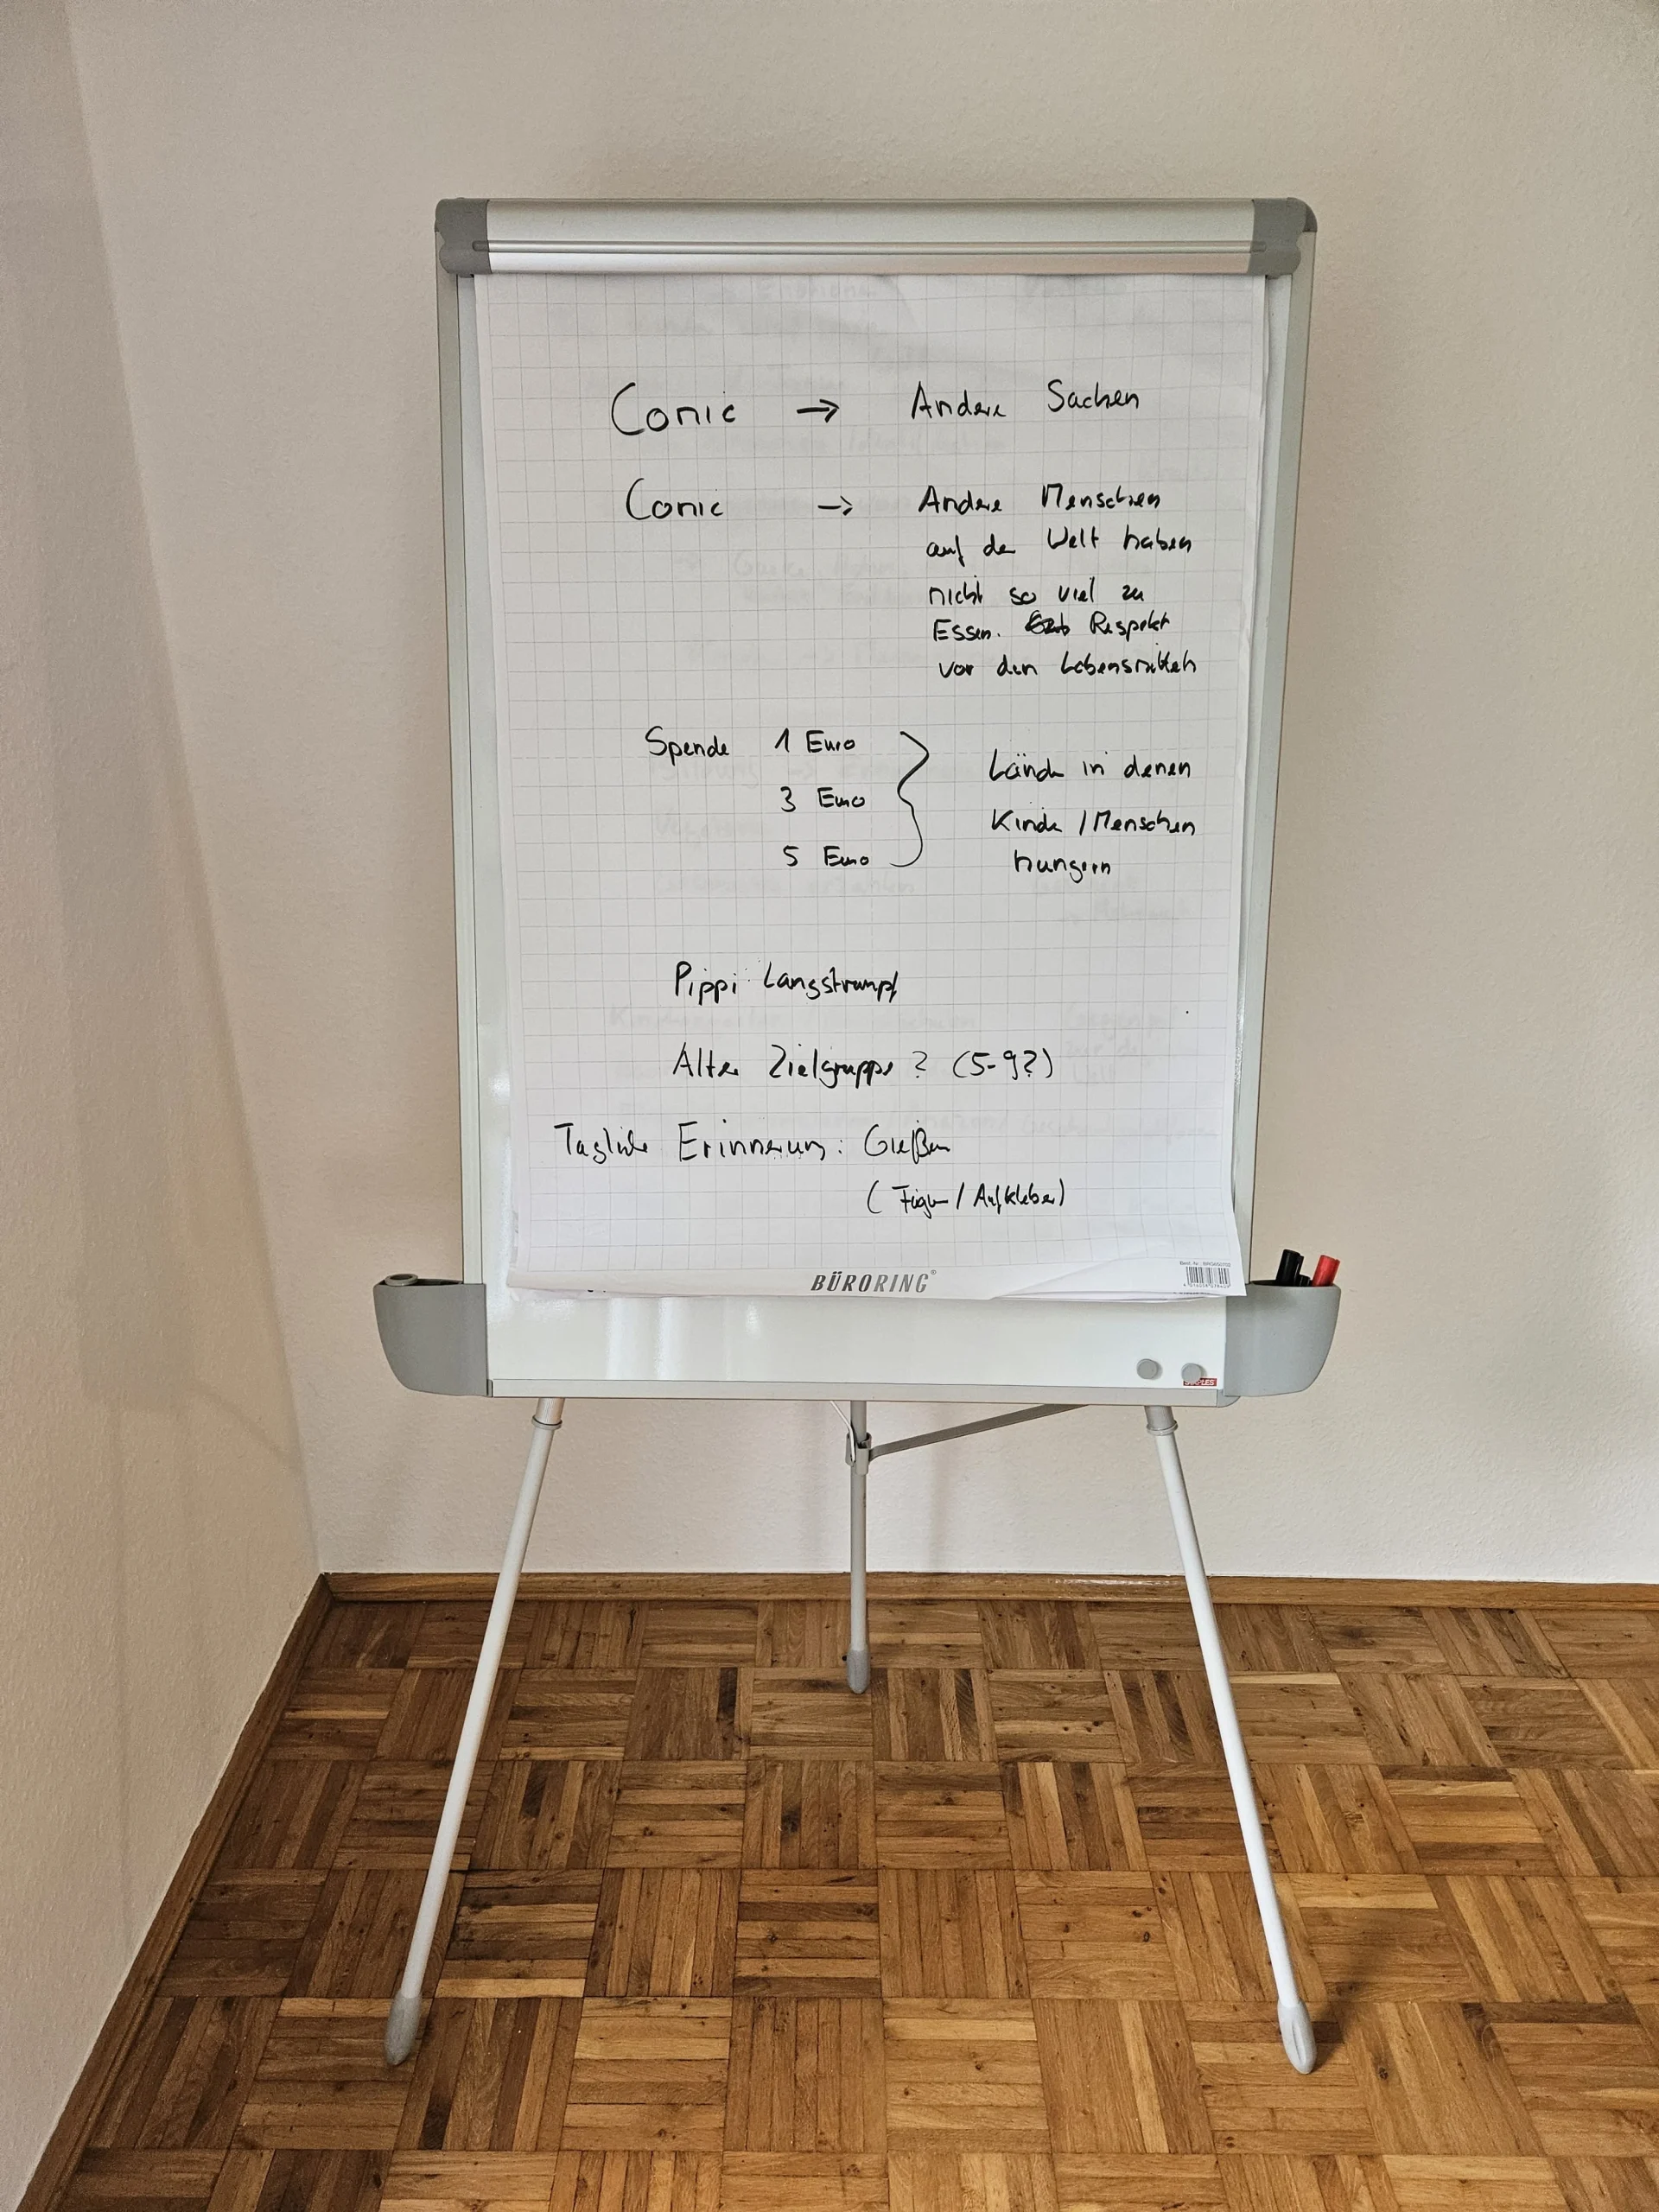 Comic → Andere Sachen
Comic → Andere Menschen
auf der Welt haben
nicht so viel zu
Essen. Respekt
vor den Lebensmitteln
Spende 1 Euro
3 Euro
5 Euro
Länder in denen
Kinder / Menschen
hungern
Pippi Langstrumpf
Alter Zielgruppe? (5-9?)
Tägliche Erinnerung: Gießen
(Figur / Aufkleber)
BÜRORING®